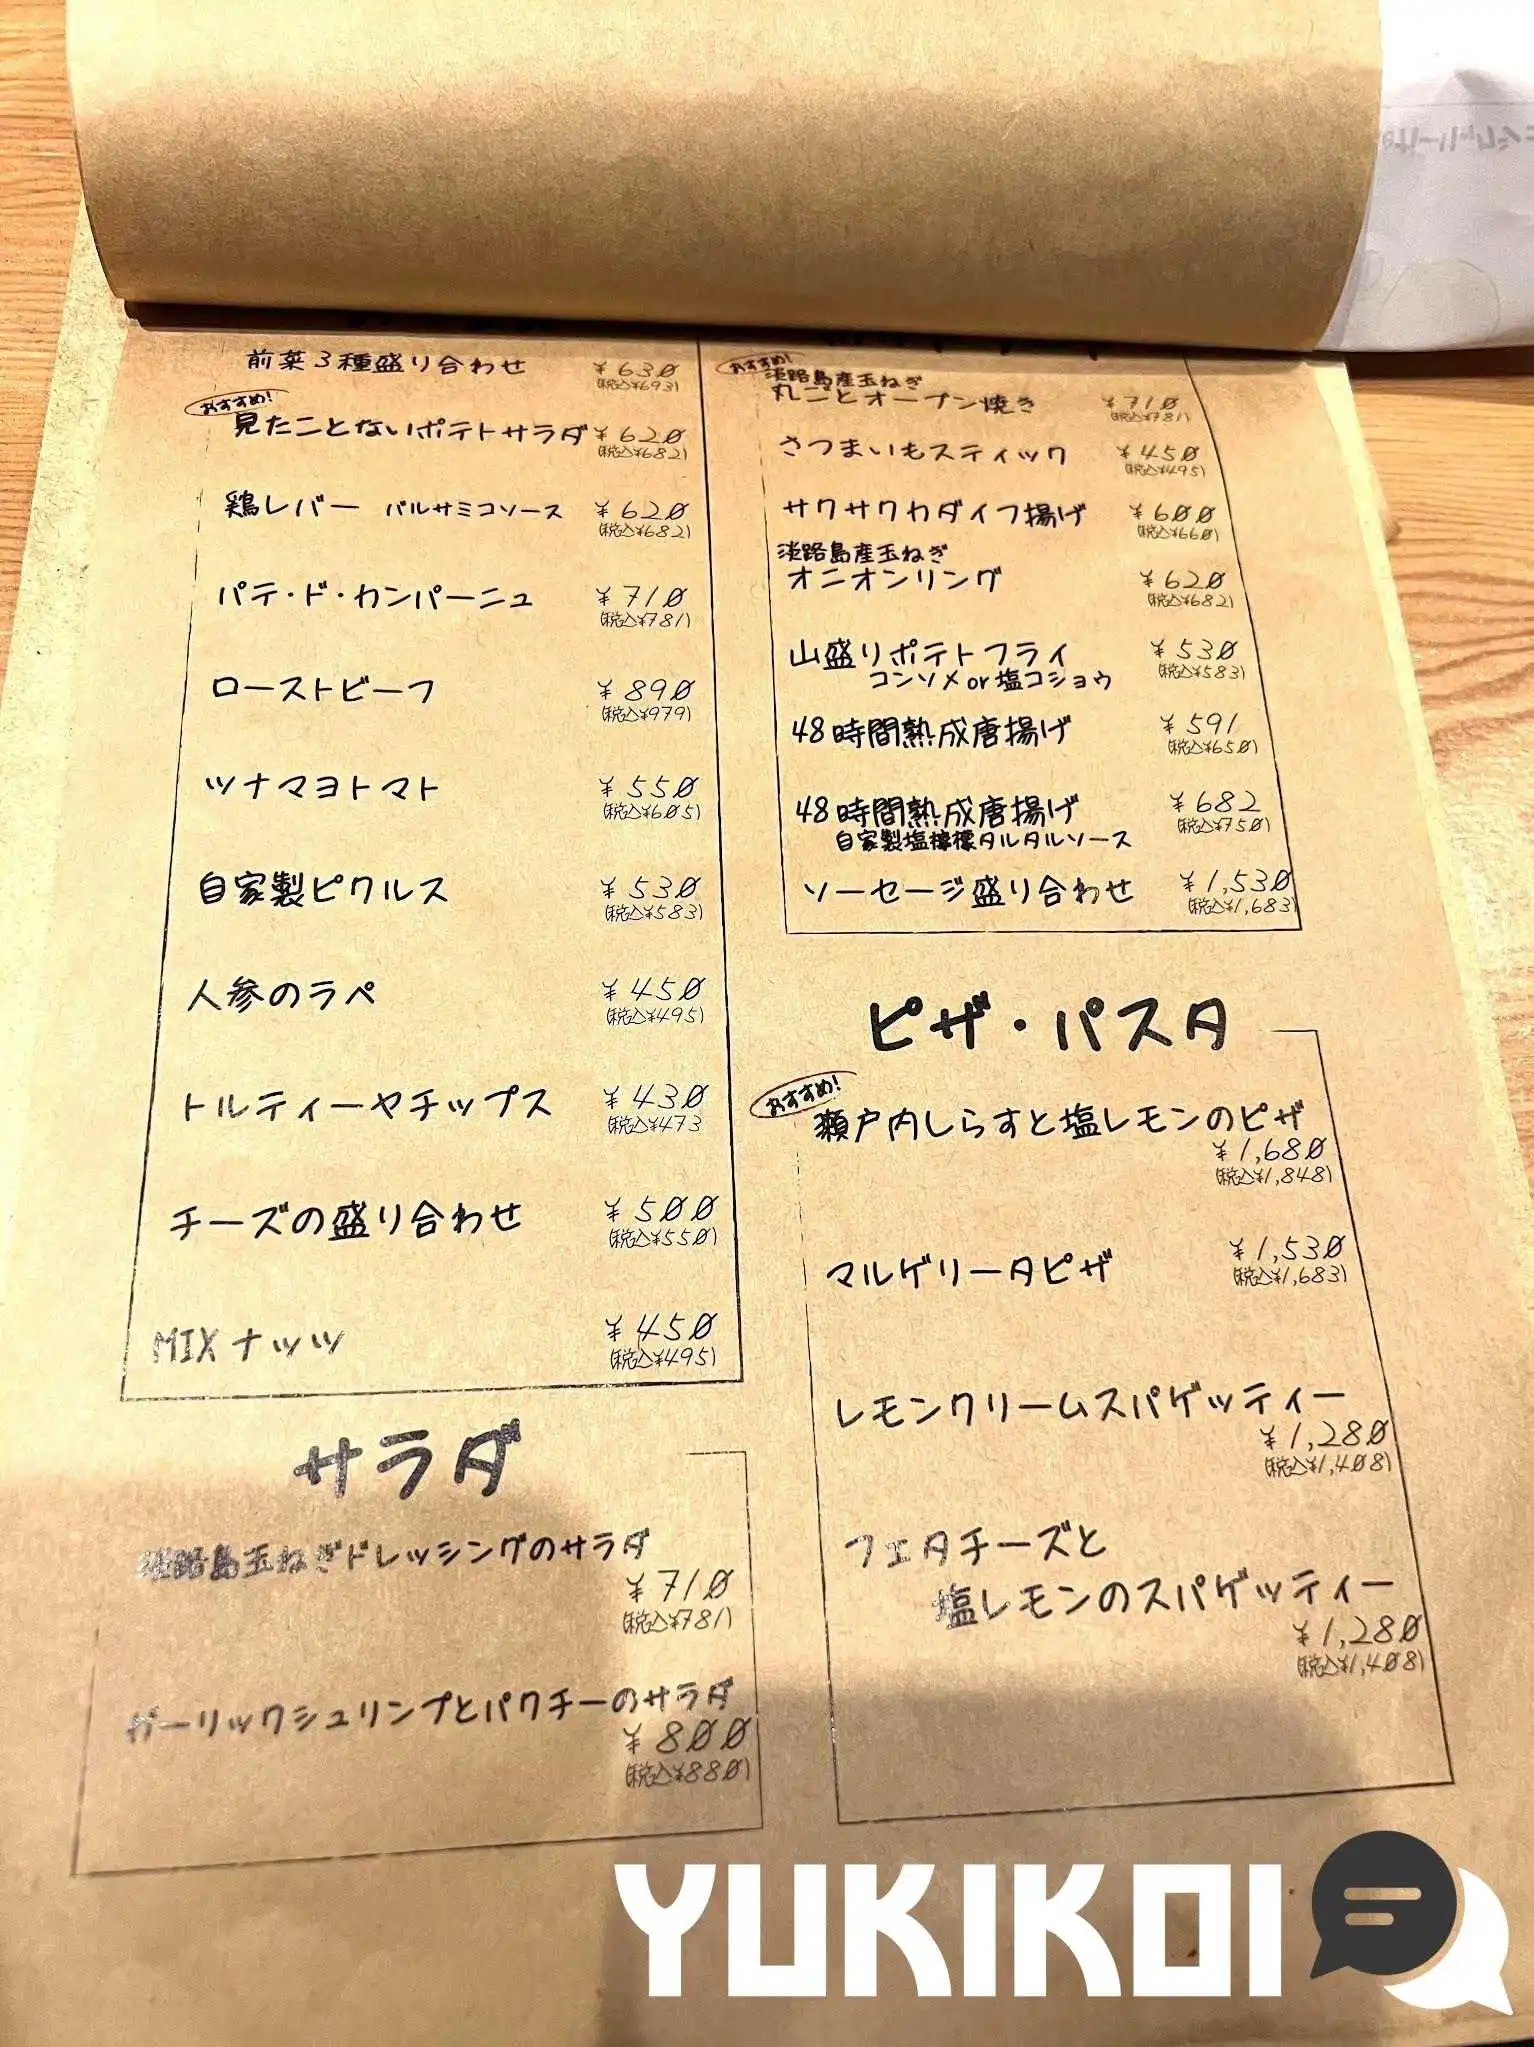 前菜3種盛り合わせ ¥630
(税込¥693)
おすすめ!
見たことないポテトサラダ ¥620
(税込¥682)
鶏レバー バルサミコソース ¥620
(税込¥682)
パテ・ド・カンパーニュ ¥710
(税込¥781)
ローストビーフ ¥890
(税込¥979)
ツナマヨトマト ¥550
(税込¥605)
自家製ピクルス ¥530
(税込¥583)
人参のラペ ¥450
(税込¥495)
トルティーヤチップス ¥430
(税込¥473
チーズの盛り合わせ ¥500
(税込¥550)
MIXナッツ ¥450
(税込¥495)
サラダ
淡路島玉ねぎドレッシングのサラダ
¥710
(税込¥781)
ガーリックシュリンプとパクチーのサラダ
¥800
(税込¥880)
おすすめ!
淡路島産玉ねぎ
丸ごとオーブン焼き ¥710
(税込¥781)
さつまいもスティック ¥450
(税込¥495)
サクサクカダイフ揚げ ¥600
(税込¥660)
淡路島産玉ねぎ
オニオンリング ¥620
(税込¥682)
山盛りポテトフライ ¥530
コンソメor塩コショウ (税込¥583)
48時間熟成唐揚げ ¥591
(税込¥650)
48時間熟成唐揚げ ¥682
自家製塩檸檬タルタルソース (税込¥750)
ソーセージ盛り合わせ ¥1,530
(税込¥1,683)
ピザ・パスタ
おすすめ!
瀬戸内しらすと塩レモンのピザ
¥1,680
(税込¥1,848)
マルゲリータピザ ¥1,530
(税込¥1,683)
レモンクリームスパゲッティー
¥1,280
(税込¥1,408)
フェタチーズと
塩レモンのスパゲッティー
¥1,280
(税込¥1,408)
YUKIKOI